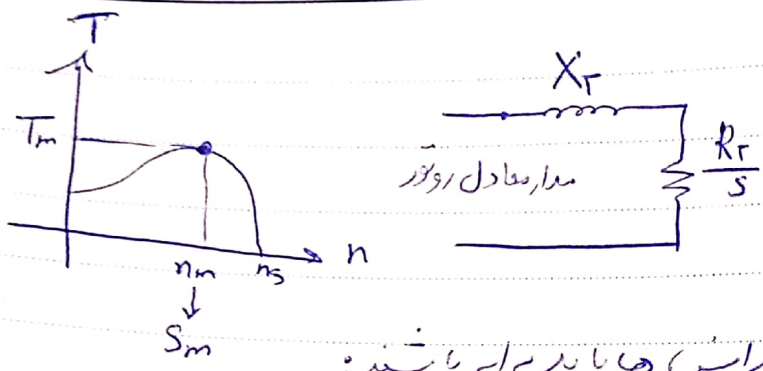 T
T_m
n
n_m n_s
S_m
X_r
R_r
S
مدار معادل روتور
ها باید برابر باشند: